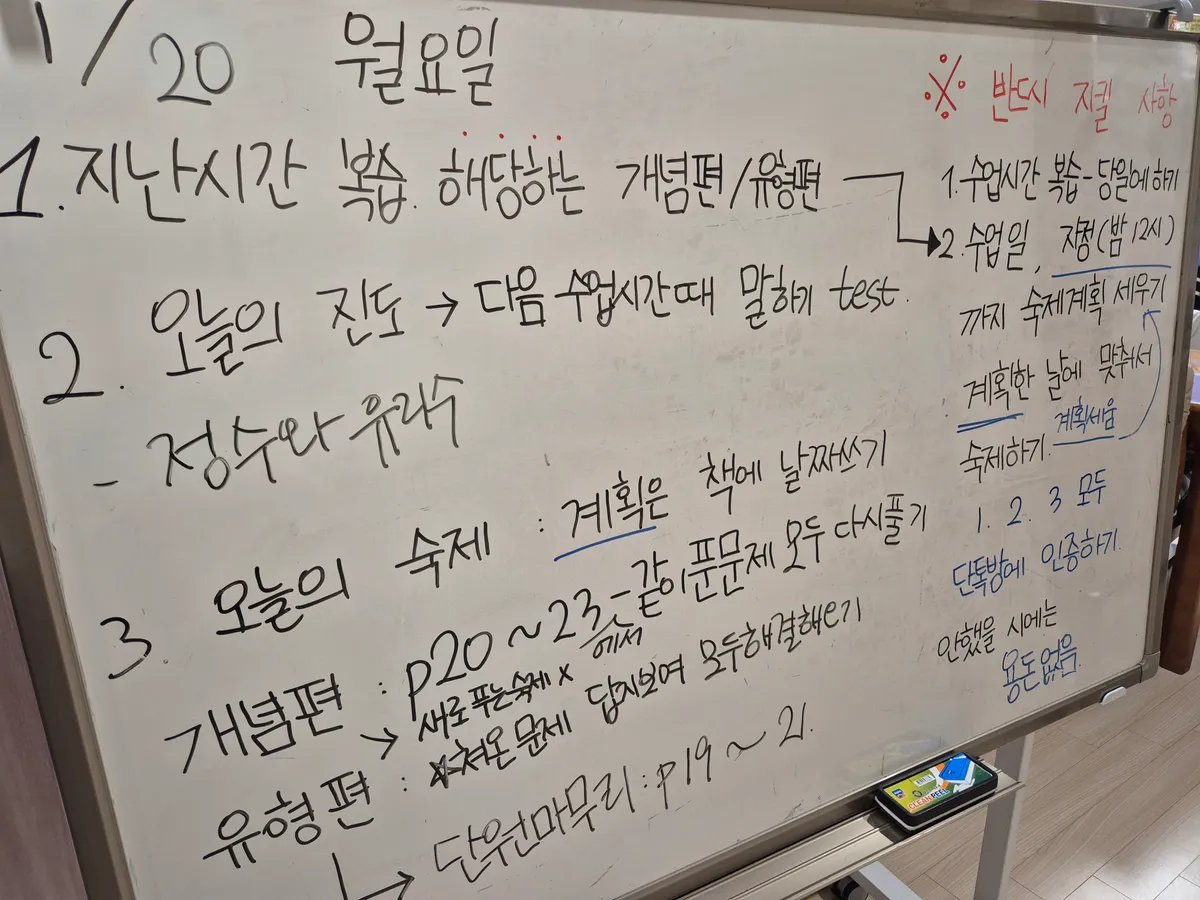 1/20 월요일
1. 지난시간 복습. 해당하는 개념편/유형편
2. 오늘의 진도 → 다음 수업시간때 말하기 test.
- 정수와 유리수
3. 오늘의 숙제 : 계획은 책에 날짜쓰기
개념편 : p20 ~ 23 - 같이푼문제 모두 다시풀기
에서
→ 새로 푸는숙제 x
유형편 : ☆쳐온 문제 답지보며 모두해결해오기
→ 단원마무리 : p19 ~ 21.
※ 반드시 지킬 사항
1. 수업시간 복습 - 당일에 하기
2. 수업일, 자정(밤 12시)
까지 숙제계획 세우기
계획한 날에 맞춰서
숙제하기. 계획세움
1. 2. 3 모두
단톡방에 인증하기.
안했을 시에는
용돈없음.
CLEAN PEEL